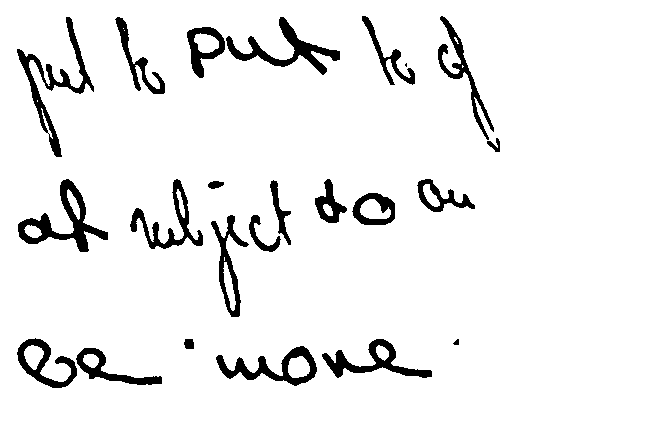 put to put to of
at subject to an
be . more .